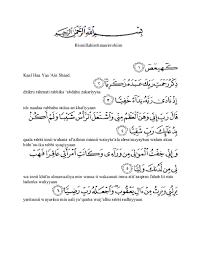 بِسْمِ اللَّهِ الرَّحْمَٰنِ الرَّحِيمِ
Bismillahirrahmanirrahim
كهيعص ١
Kaaf Haa Yaa 'Ain Shaad.
ذِكْرُ رَحْمَتِ رَبِّكَ عَبْدَهُ زَكَرِيَّا ٢
dzikru rahmati rabbika 'abdahu zakariyyaa
إِذْ نَادَىٰ رَبَّهُ نِدَاءً خَفِيًّا ٣
idz naadaa rabbahu nidaa-an khafiyyaan
قَالَ رَبِّ إِنِّي وَهَنَ الْعَظْمُ مِنِّي وَاشْتَعَلَ الرَّأْسُ شَيْبًا وَلَمْ أَكُنْ
بِدُعَائِكَ رَبِّ شَقِيًّا ٤
qaala rabbi innii wahana al'azhmu minnii waisyta'ala alrra/su syayban walam akun
bidu'aa-ika rabbi syaqiyyaan
وَإِنِّي خِفْتُ الْمَوَالِيَ مِنْ وَرَائِي وَكَانَتِ امْرَأَتِي عَاقِرًا فَهَبْ
لِي مِنْ لَدُنْكَ وَلِيًّا ٥
wa-innii khiftu almawaaliya min waraa-ii wakaanati imra-atii 'aaqiran fahab lii min
ladunka waliyyaan
يَرِثُنِي وَيَرِثُ مِنْ آلِ يَعْقُوبَ وَاجْعَلْهُ رَبِّ رَضِيًّا ٦
yaritsunii wayaritsu min aali ya'quuba waij'alhu rabbi radhiyyaan